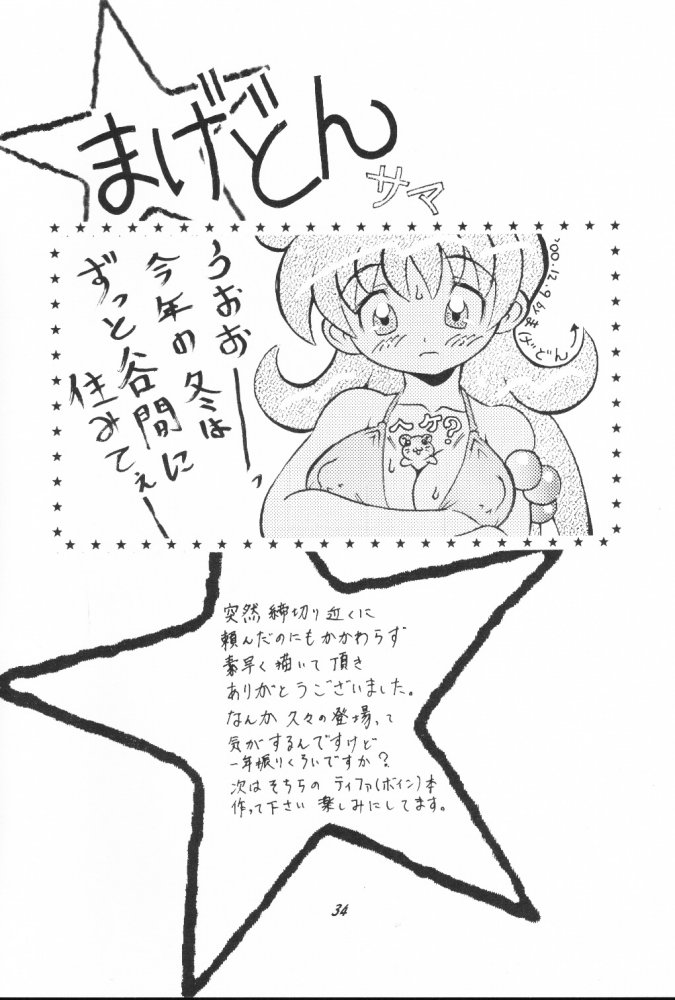 まげどん
サマ
うおおーっ
今年の冬は
ずっと谷間に
住みてぇー
'00.12.9 by まげどん
ヘケ?
突然締切り近くに
頼んだのにもかかわらず
素早く描いて頂き
ありがとうございました。
なんか久々の登場って
気がするんですけど
一年振りくらいですか?
次はそちらのティファ(ボイン)本
作って下さい 楽しみにしてます。
34